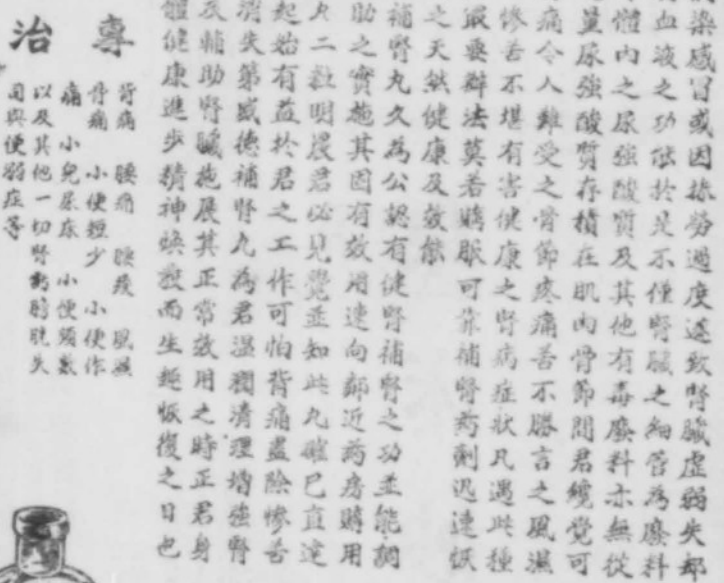 染感冒或因操勞過度遂致腎臟虛弱失却
血液之功能於是不僅腎臟之細管為廢料
體內之尿強酸質及其他有毒廢料亦無從
量尿強酸質存積在肌肉骨節間君纔覺可
痛令人難受之骨節疼痛苦不勝言之風濕
慘苦不堪有害健康之腎病症狀凡遇此種
最要辦法莫若購服可靠補腎药劑迅速恢
之天然健康及效能
補腎丸久為公認有健腎補腎之功並能調
助之實施其因有效用速向鄰近药房購用
丸二粒明晨君必見覺並知此丸確已直達
起始有益於君之工作可怕背痛盡除慘苦
消失第威德補腎丸為君溫潤清理增強腎
及輔助腎臟施展其正常效用之時正君身
體健康進步精神煥發而生趣恢復之日也
專治
背痛 腰痛 腰痠 風濕
骨痛 小便短少 小便作
痛 小兒尿床 小便頻數
以及其他一切腎虧膀胱失
司與便弱症等